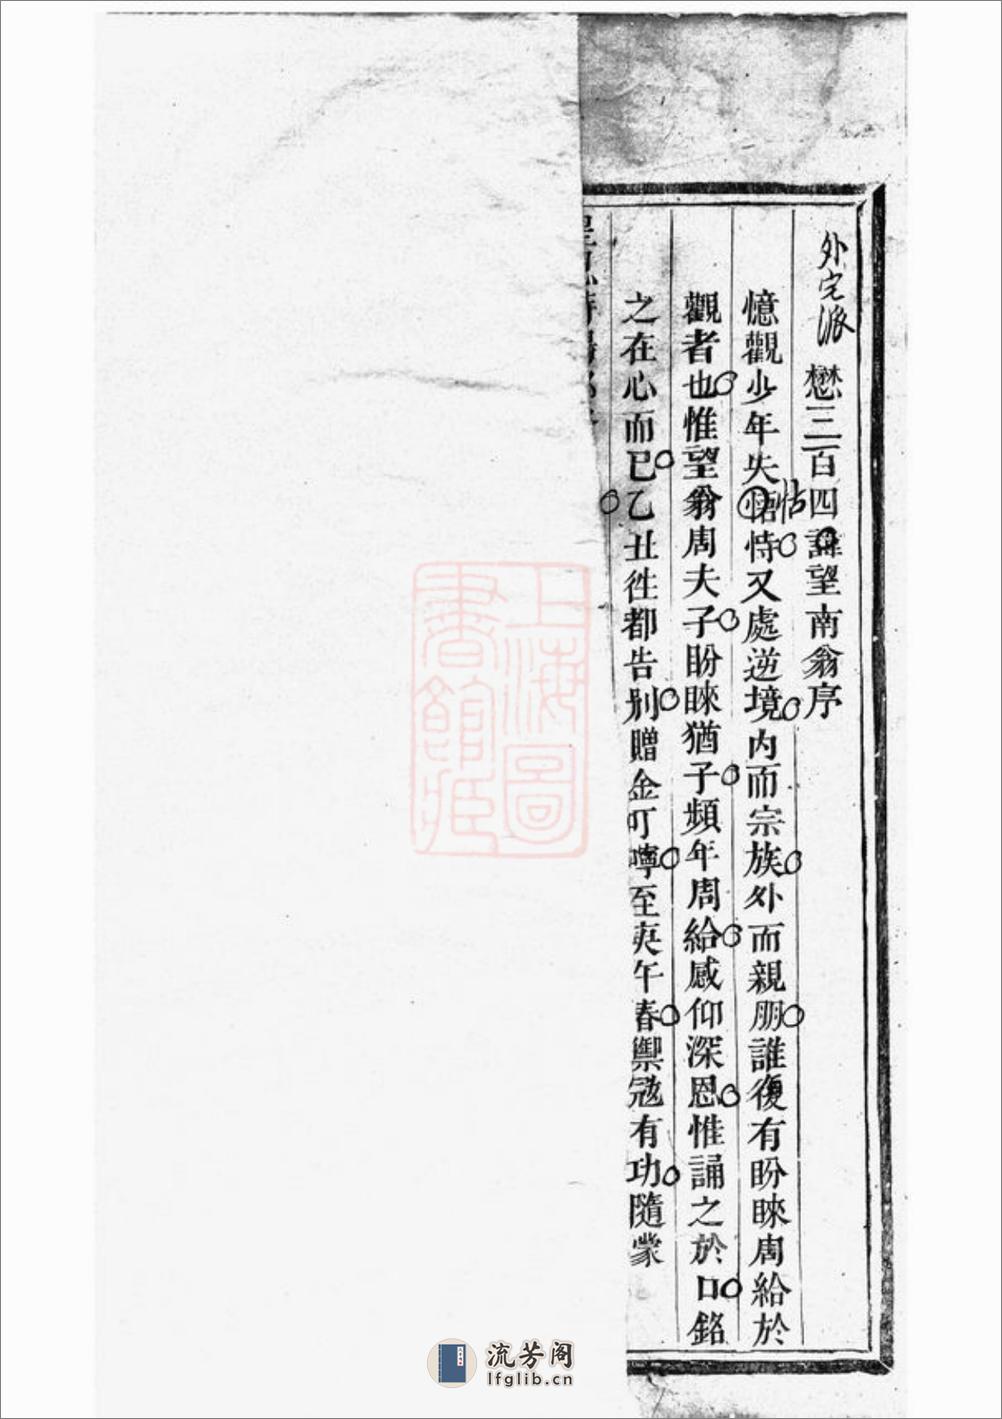 外宅派
懋三百四諱望南翁序
憶觀少年失悟恃又處逆境内而宗族外而親朋誰復有盼睞周給於
怙
觀者也惟望翁周夫子盼睞猶子頻年周給感仰深恩惟誦之於口銘
之在心而已乙丑徃都告别贈金叮嚀至庚午春禦冦有功隨蒙
上海圖書館藏
流芳阁
lfglib.cn